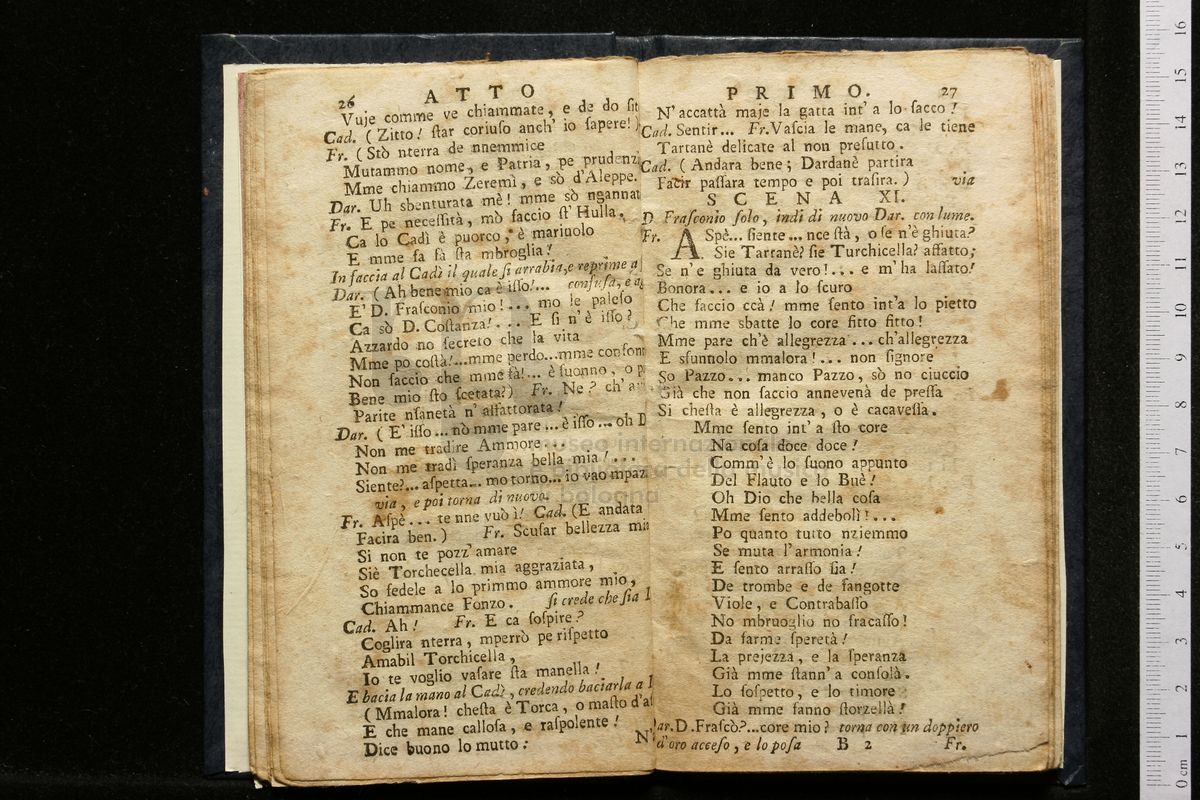 26 ATTO
Vuje comme ve chiammate, e de do ſit
Cad. (Zitto! ſtar corioſo anch' io ſapere!)
Fr. (Stò nterra de nnemmice
Mutammo nome, e Patria, pe prudenz
Mme chiammo Zeremì, e sò d'Aleppe.
Dar. Uh sbenturata mè! mme sò ngannat
Fr. E pe neceſſità, mò faccio ſt' Hulla,
Ca lo Cadì è puorco, è mariuolo
E mme fa fà ſta mbroglia!
In faccia al Cadì il quale ſi arrabia, e reprime
Dar. (Ah bene mio ca è iſſo!... confuſa, e
E' D. Fraſconio mio!... mo le paleſo
Ca sò D. Coſtanza!... E ſi n'è iſſo?
Azzardo no ſecreto che la vita
Mme po coſtà!...mme perdo...mme confonn
Non ſaccio che mme fà!... è ſuonno, o
Bene mio ſto ſcetata?) Fr. Ne? ch'
Parite nſanetà n' alfattorata!
Dar. (E' iſſo...nò mme pare...è iſſo...oh D
Non me tradire Ammore...
Non me tradì ſperanza bella mia!...
Siente?...aſpetta...mo torno...io vao mpaz
via, e poi torna di nuovo.
Fr. Aſpè... te nne vuò ì! Cad. (E andata
Facira ben.) Fr. Scuſar bellezza mia
Si non te pozz' amare
Siè Torchecella mia aggraziata,
So fedele a lo primmo ammore mio,
Chiammance Fonzo. ſi crede che ſia
Cad. Ah! Fr. E ca ſoſpire?
Coglira nterra, mperrò pe riſpetto
Amabil Torchicella,
Io te voglio vaſare ſta manella!
E bacia la mano al Cadì, credendo baciarla a
(Mmalora! cheſta è Torca, o maſto d'aſ
E che mane calloſa, e raſpolente!
Dice buono lo mutto:
N'
PRIMO. 27
N' accattà maje la gatta int' a lo ſacco!
Cad. Sentir... Fr. Vaſcia le mane, ca le tiene
Tartanè delicate al non preſutto.
Cad. (Andara bene; Dardanè partira
Facir paſſara tempo e poi traſira.) via
SCENA XI.
D. Fraſconio ſolo, indi di nuovo Dar. con lume.
Fr. ASpè... ſiente... nce ſtà, o ſe n'è ghiuta?
Sie Tartanè? ſie Turchicella? affatto;
Se n'e ghiuta da vero!... e m'ha laſſato!
Bonora... e io a lo ſcuro
Che faccio ccà! mme ſento int'a lo pietto
Che mme sbatte lo core fitto fitto!
Mme pare ch'è allegrezza... ch'allegrezza
E sfunnolo mmalora!... non ſignore
So Pazzo... manco Pazzo, sò no ciuccio
Già che non faccio annevenà de preſſa
Si cheſta è allegrezza, o è cacaveſſa.
Mme ſento int'a ſto core
Na coſa doce doce!
Comm' è lo ſuono appunto
Del Flauto e lo Buè!
Oh Dio che bella coſa
Mme ſento addebolì!...
Po quanto tutto nziemmo
Se muta l'armonia!
E ſento arraſſo ſia!
De trombe e de fangotte
Viole, e Contrabaſſo
No mbruoglio no fracaſſo!
Da farme ſperetà!
La prejezza, e la ſperanza
Già mme ſtann' a conſolà.
Lo ſoſpetto, e lo timore
Già mme fanno ſtorzellà!
Dar. D. Fraſcò?...core mio? torna con un doppiero
d'oro acceſo, e lo poſa B 2 Fr.
museo internazionale
e biblioteca della musica
bologna
0 cm 1 2 3 4 5 6 7 8 9 10 11 12 13 14 15 16